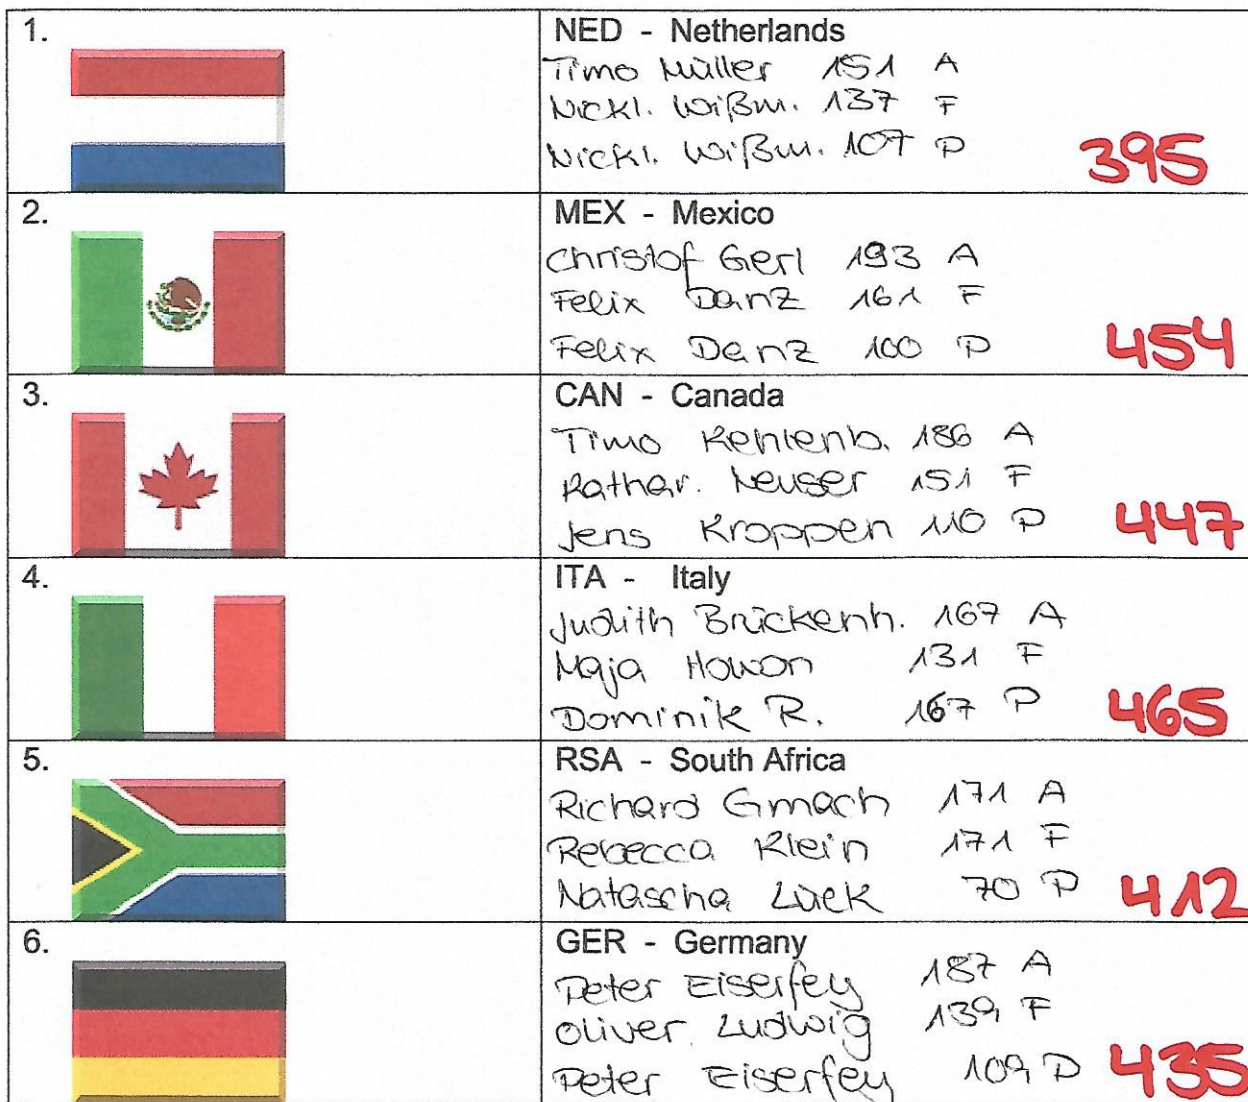 1.
NED - Netherlands
Timo Müller 151 A
Nickl. Wißm. 137 F
Nickl. Wißm. 107 P
395
2.
MEX - Mexico
Christof Gerl 193 A
Felix Danz 161 F
Felix Danz 100 P
454
3.
CAN - Canada
Timo Kehlenb. 186 A
Kathar. Neuser 151 F
Jens Kroppen 110 P
447
4.
ITA - Italy
Judith Brückenh. 167 A
Maja Howon 131 F
Dominik R. 167 P
465
5.
RSA - South Africa
Richard Gmach 171 A
Rebecca Klein 171 F
Natascha Lück 70 P
412
6.
GER - Germany
Peter Eiserfey 187 A
Oliver Ludwig 139 F
Peter Eiserfey 109 P
435